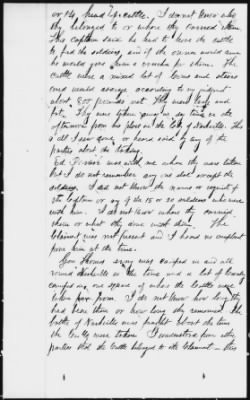 or 14, head of cattle. I do not know who
they belonged to or where they carried them.
The Captain said he had to have the cattle
to feed the soldiers, and if the owner would come
he would give him a voucher for them. The
cattle were a mixed lot of Cows and steers
and would average according to my judgment
about 800 pounds nett. They were large and
fat. They were taken away in day time in the
afternoon from his place in the City of Nashville. This
is all I ever saw or heard said by any of the
parties about the taking.
was with me when they were taken
but I do not remember any one else except the
soldiers. I did not know the name or regiment of
the Captain or any of the 15 or 20 soldiers who were
with him. I do not know where they carried
them or what they done with them. The
Claimant was not present and I heard no complaint
from him at the time.
Gen Thomas army was camped in and all
around Nashville at the time and a lot of Cavalry
camped in one square of where the Cattle were
taken from. I do not know how long they
had been there or how long they remained. The
battle of Nashville was fought about the time
the Cattle were taken. I understood from other
parties that the Cattle belonged to the Claimant - this